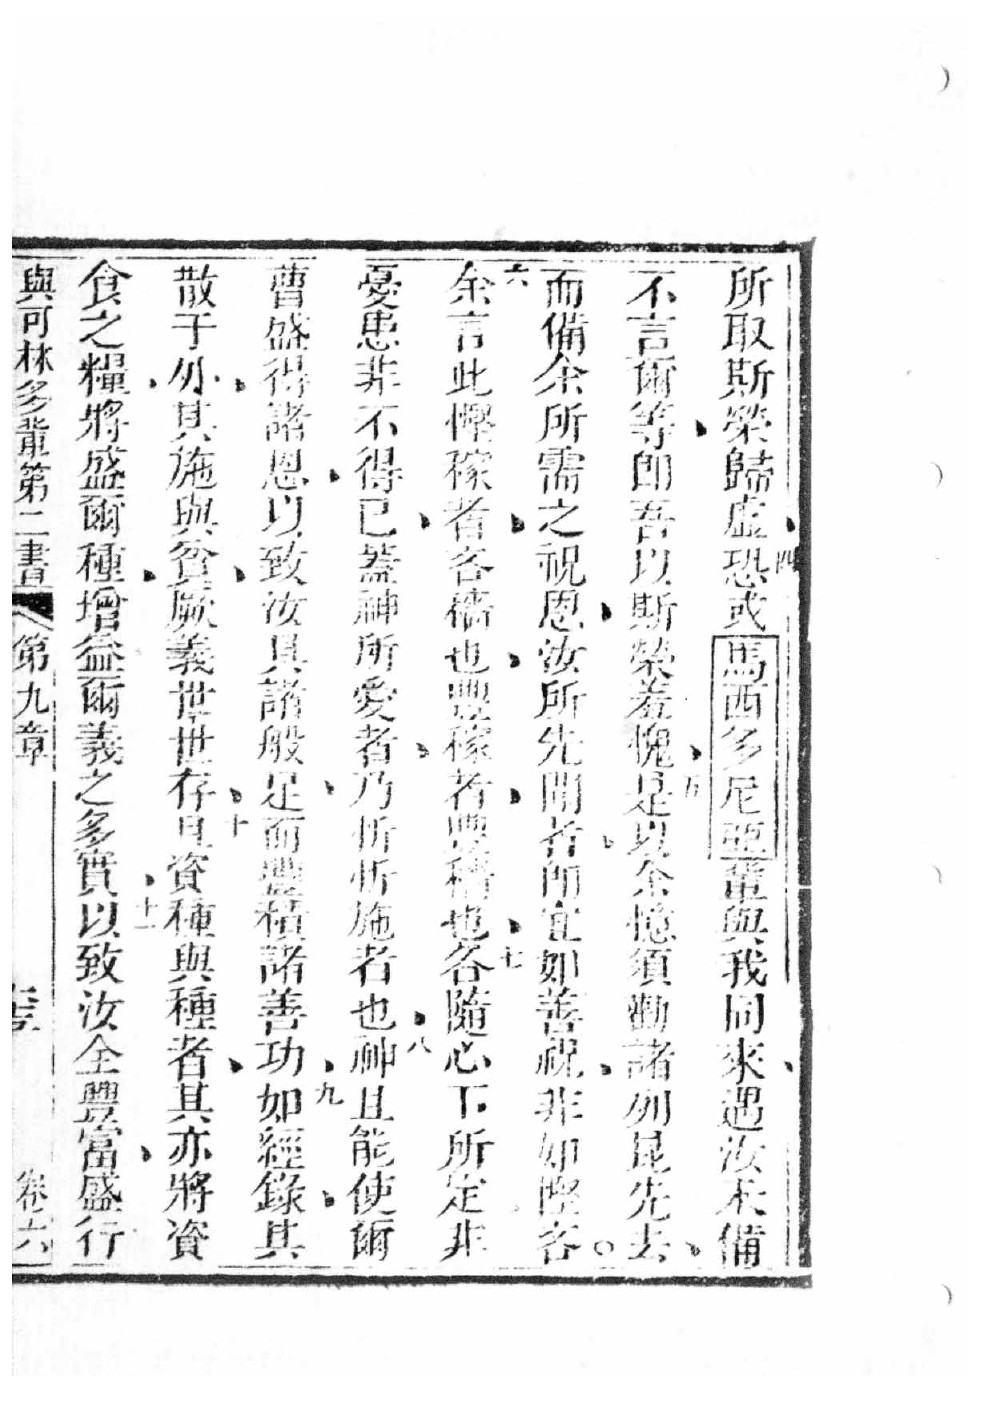 所取斯榮歸虛四恐或馬西多尼亞輩與我同來遇汝未備
不言爾等卽吾以斯榮羞愧五是以余憶須勸諸列昆先去
而備余所需之祝恩汝所先聞者卽宜如善祝非如慳吝
六余言此慳稼者吝穡也豐稼者豐穡也七各隨心下所定非
憂患非不得已蓋神所愛者乃忻忻施者也八神且能使爾
曹盛得諸恩以致汝具諸般足而豐積諸善功九如經錄其
散于外其施與貧厥義世世存十且資種與種者其亦將資
食之糧將盛爾種增益爾義之多實十一以致汝全豐富盛行
與可林多輩第二書 第九章 卷六